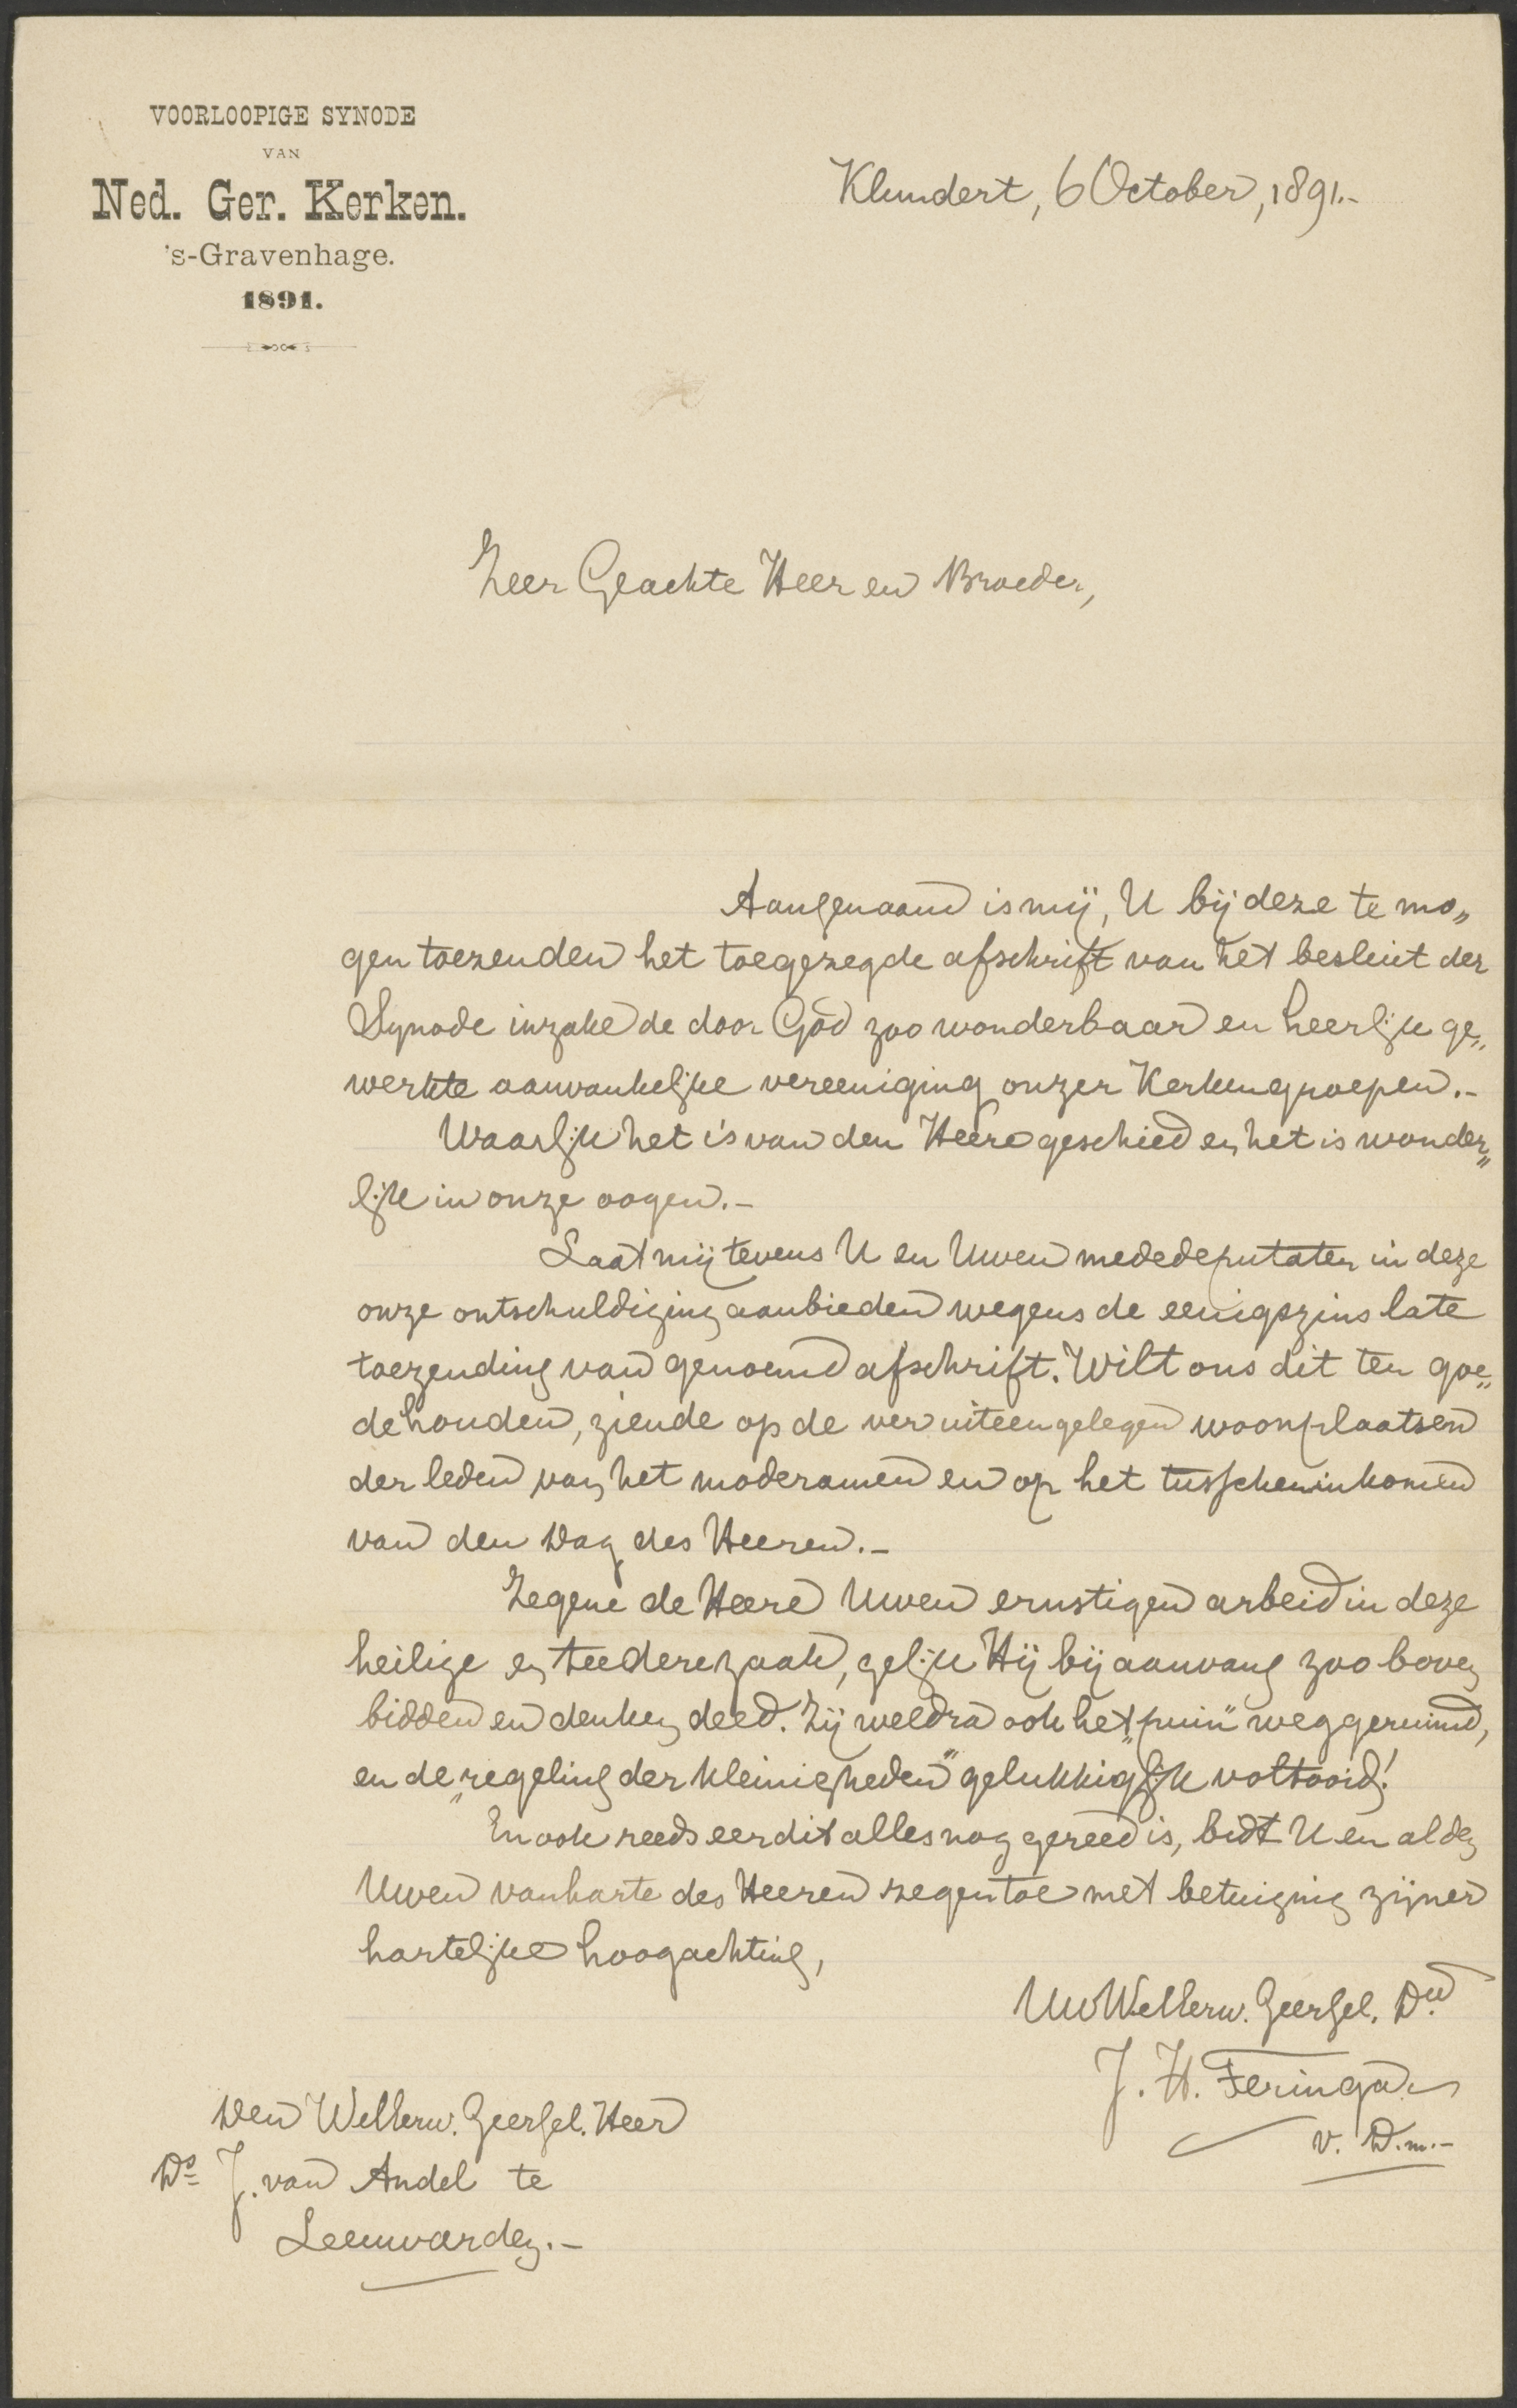 VOORLOOPIGE SYNODE
VAN
Ned. Ger. Kerken.
's-Gravenhage.
1891.
Klundert, 6 October, 1891.-
Zeer Geachte Heer en Broeder,
Aangenaam is mij, U bij deze te mo„
gen toezenden het toegezegde afschrift van het besluit der
Synode inzake de door God zoo wonderbaar en heerlijk ge„
werkte aanvankelijke vereeniging onzer Kerkengroepen.-
Waarlijk het is van den Heere geschied en het is wonder„
lijk in onze oogen.-
Laat mij tevens U en Uwen mededeputaten in deze
onze ontschuldiging aanbieden wegens de eenigszins late
toezending van genoemd afschrift. Wilt ons dit ten goe„
de houden, ziende op de ver uiteengelegen woonplaatsen
der leden van het moderamen en op het tusscheninkomen
van den Dag des Heeren.-
Zegene de Heere Uwen ernstigen arbeid in deze
heilige en teedere zaak, gelijk Hij bij aanvang zoo boven
bidden en denken deed. Zij weldra ook het „puin" weggeruimd,
en de „regeling der kleinigheden" gelukkiglijk voltooid!
En ook reeds eer dit alles nog gereed is, bidt U en al den
Uwen van harte des Heeren zegen toe met betuiging zijner
hartelijke hoogachting,
Uw WelEerw. Geersel. Dw.
J. H. Feringa.
v. D. m.-
Den WelEerw. Geersel. Heer
Ds J. van Andel te
Leeuwarden.-